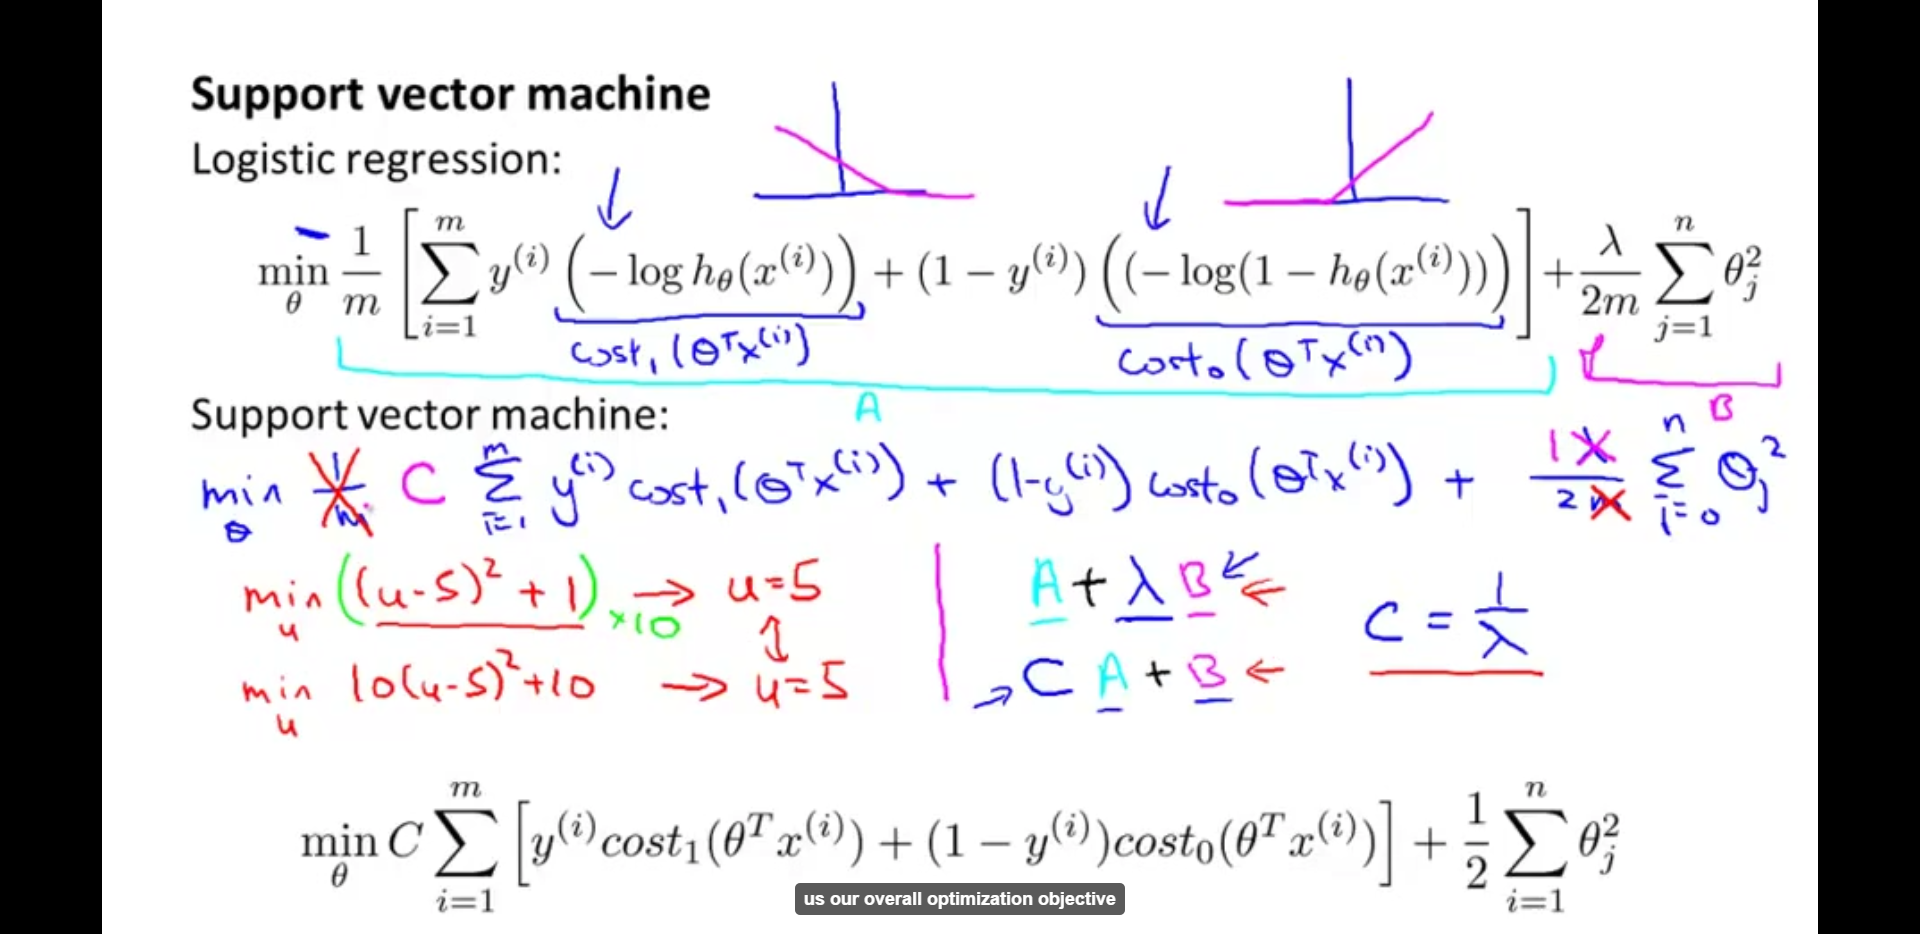 Support vector machine
Logistic regression:
min_θ 1/m [ ∑_{i=1}^{m} y^{(i)} (− log h_θ(x^{(i)})) + (1 − y^{(i)}) ((− log(1 − h_θ(x^{(i)}))) ] + λ/2m ∑_{j=1}^{n} θ_j^2
cost₁(θᵀx^{(i)}) cost₀(θᵀx^{(i)})
A B
Support vector machine:
min_θ 1/m C ∑_{i=1}^{m} y^{(i)} cost₁(θᵀx^{(i)}) + (1-y^{(i)}) cost₀(θᵀx^{(i)}) + 1 λ/2 m ∑_{i=0}^{n} θ_j^2
min_u ((u-5)² + 1) ×10 → u=5 A + λ B ← C = 1/λ
min_u 10(u-5)²+10 → u=5 → C A + B ←
min_θ C ∑_{i=1}^{m} [ y^{(i)}cost₁(θᵀx^{(i)}) + (1 − y^{(i)})cost₀(θᵀx^{(i)}) ] + 1/2 ∑_{i=1}^{n} θ_j^2
us our overall optimization objective